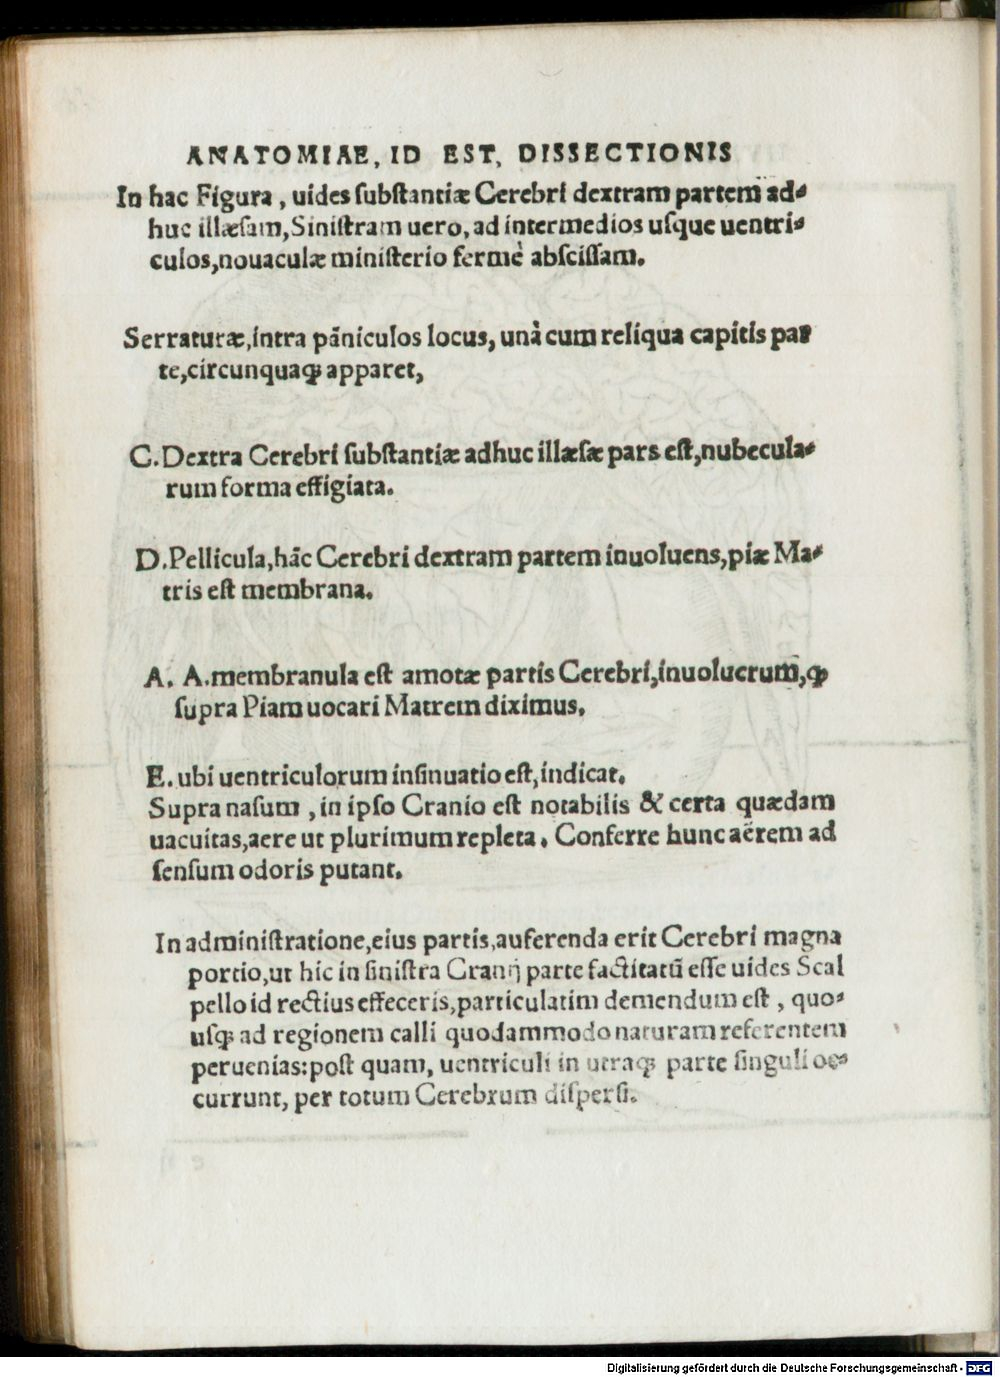 ANATOMIAE, ID EST, DISSECTIONIS
In hac Figura, uides ſubſtantiæ Cerebri dextram partem ad-
huc illæſam, Siniſtram uero, ad intermedios uſque uentri-
culos, nouaculæ miniſterio fermè abſciſſam.
Serraturæ, intra pāniculos locus, unà cum reliqua capitis par
te, circunquaqꝫ apparet,
C. Dextra Cerebri ſubſtantiæ adhuc illæſæ pars eſt, nubecula-
rum forma effigiata.
D. Pellicula, hāc Cerebri dextram partem inuoluens, piæ Ma-
tris eſt membrana.
A. A. membranula eſt amotæ partis Cerebri, inuolucrum, qꝫ
ſupra Piam uocari Matrem diximus.
E. ubi uentriculorum inſinuatio eſt, indicat.
Supra naſum, in ipſo Cranio eſt notabilis & certa quædam
uacuitas, aere ut plurimum repleta. Conferre hunc aërem ad
ſenſum odoris putant.
In adminiſtratione, eius partis, auferenda erit Cerebri magna
portio, ut hic in ſiniſtra Cranij parte factitatū eſſe uides Scal
pello id rectius effeceris, particulatim demendum eſt, quo-
uſqꝫ ad regionem calli quodammodo naturam referentem
peruenias: poſt quam, uentriculi in utraqꝫ parte ſinguli oc-
currunt, per totum Cerebrum diſperſi.
Digitalisierung gefördert durch die Deutsche Forschungsgemeinschaft - DFG